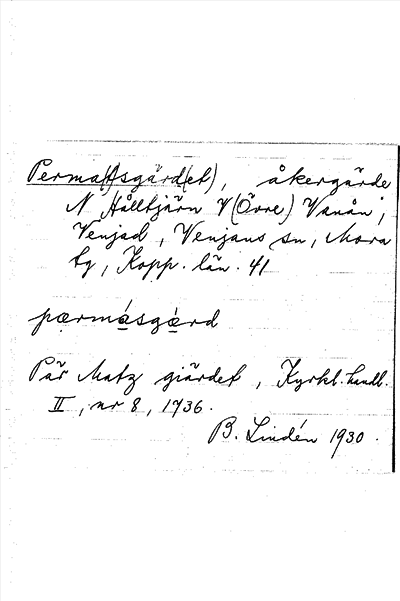 Perma(t)sgärd(et), åkergärde
N Hålltjärn V (Övre) Vanån,
Venjad, Venjans sn, Mora
tg, Kopp. län. 41
pærmásgǽrd
Pär Matz giärdet, Kyrkl. handl.
II, nr 8, 1736.
B. Lindén 1930.